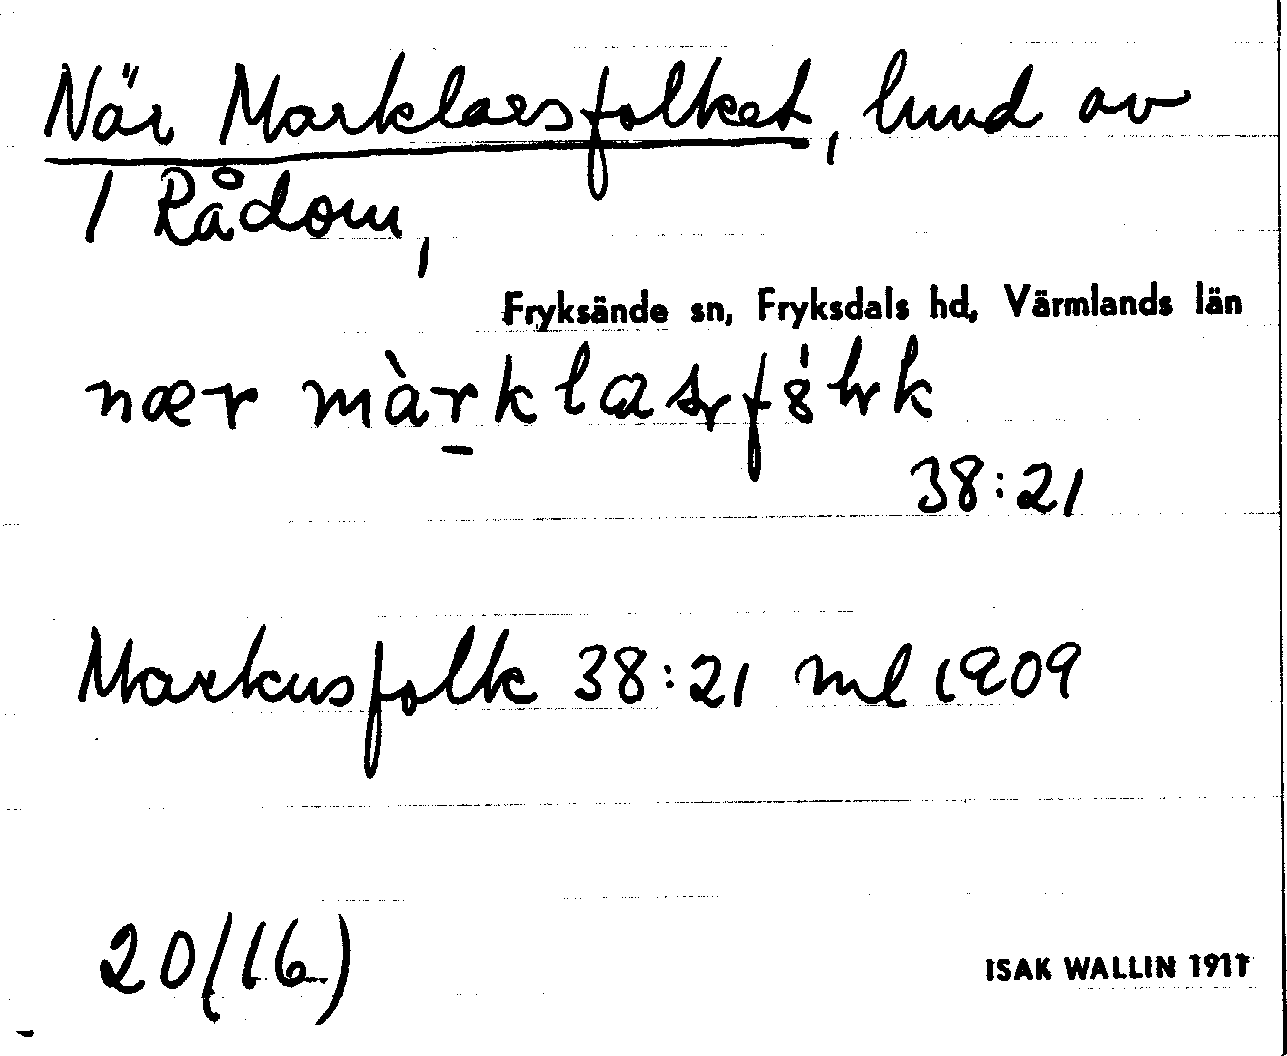 När Marklarsfolket, lund av
1 Rådom,
Fryksände sn, Fryksdals hd, Värmlands län
nær màrk
38:21
Markusfolk 38:21 ml 1909
20(16)
ISAK WALLIN 1911